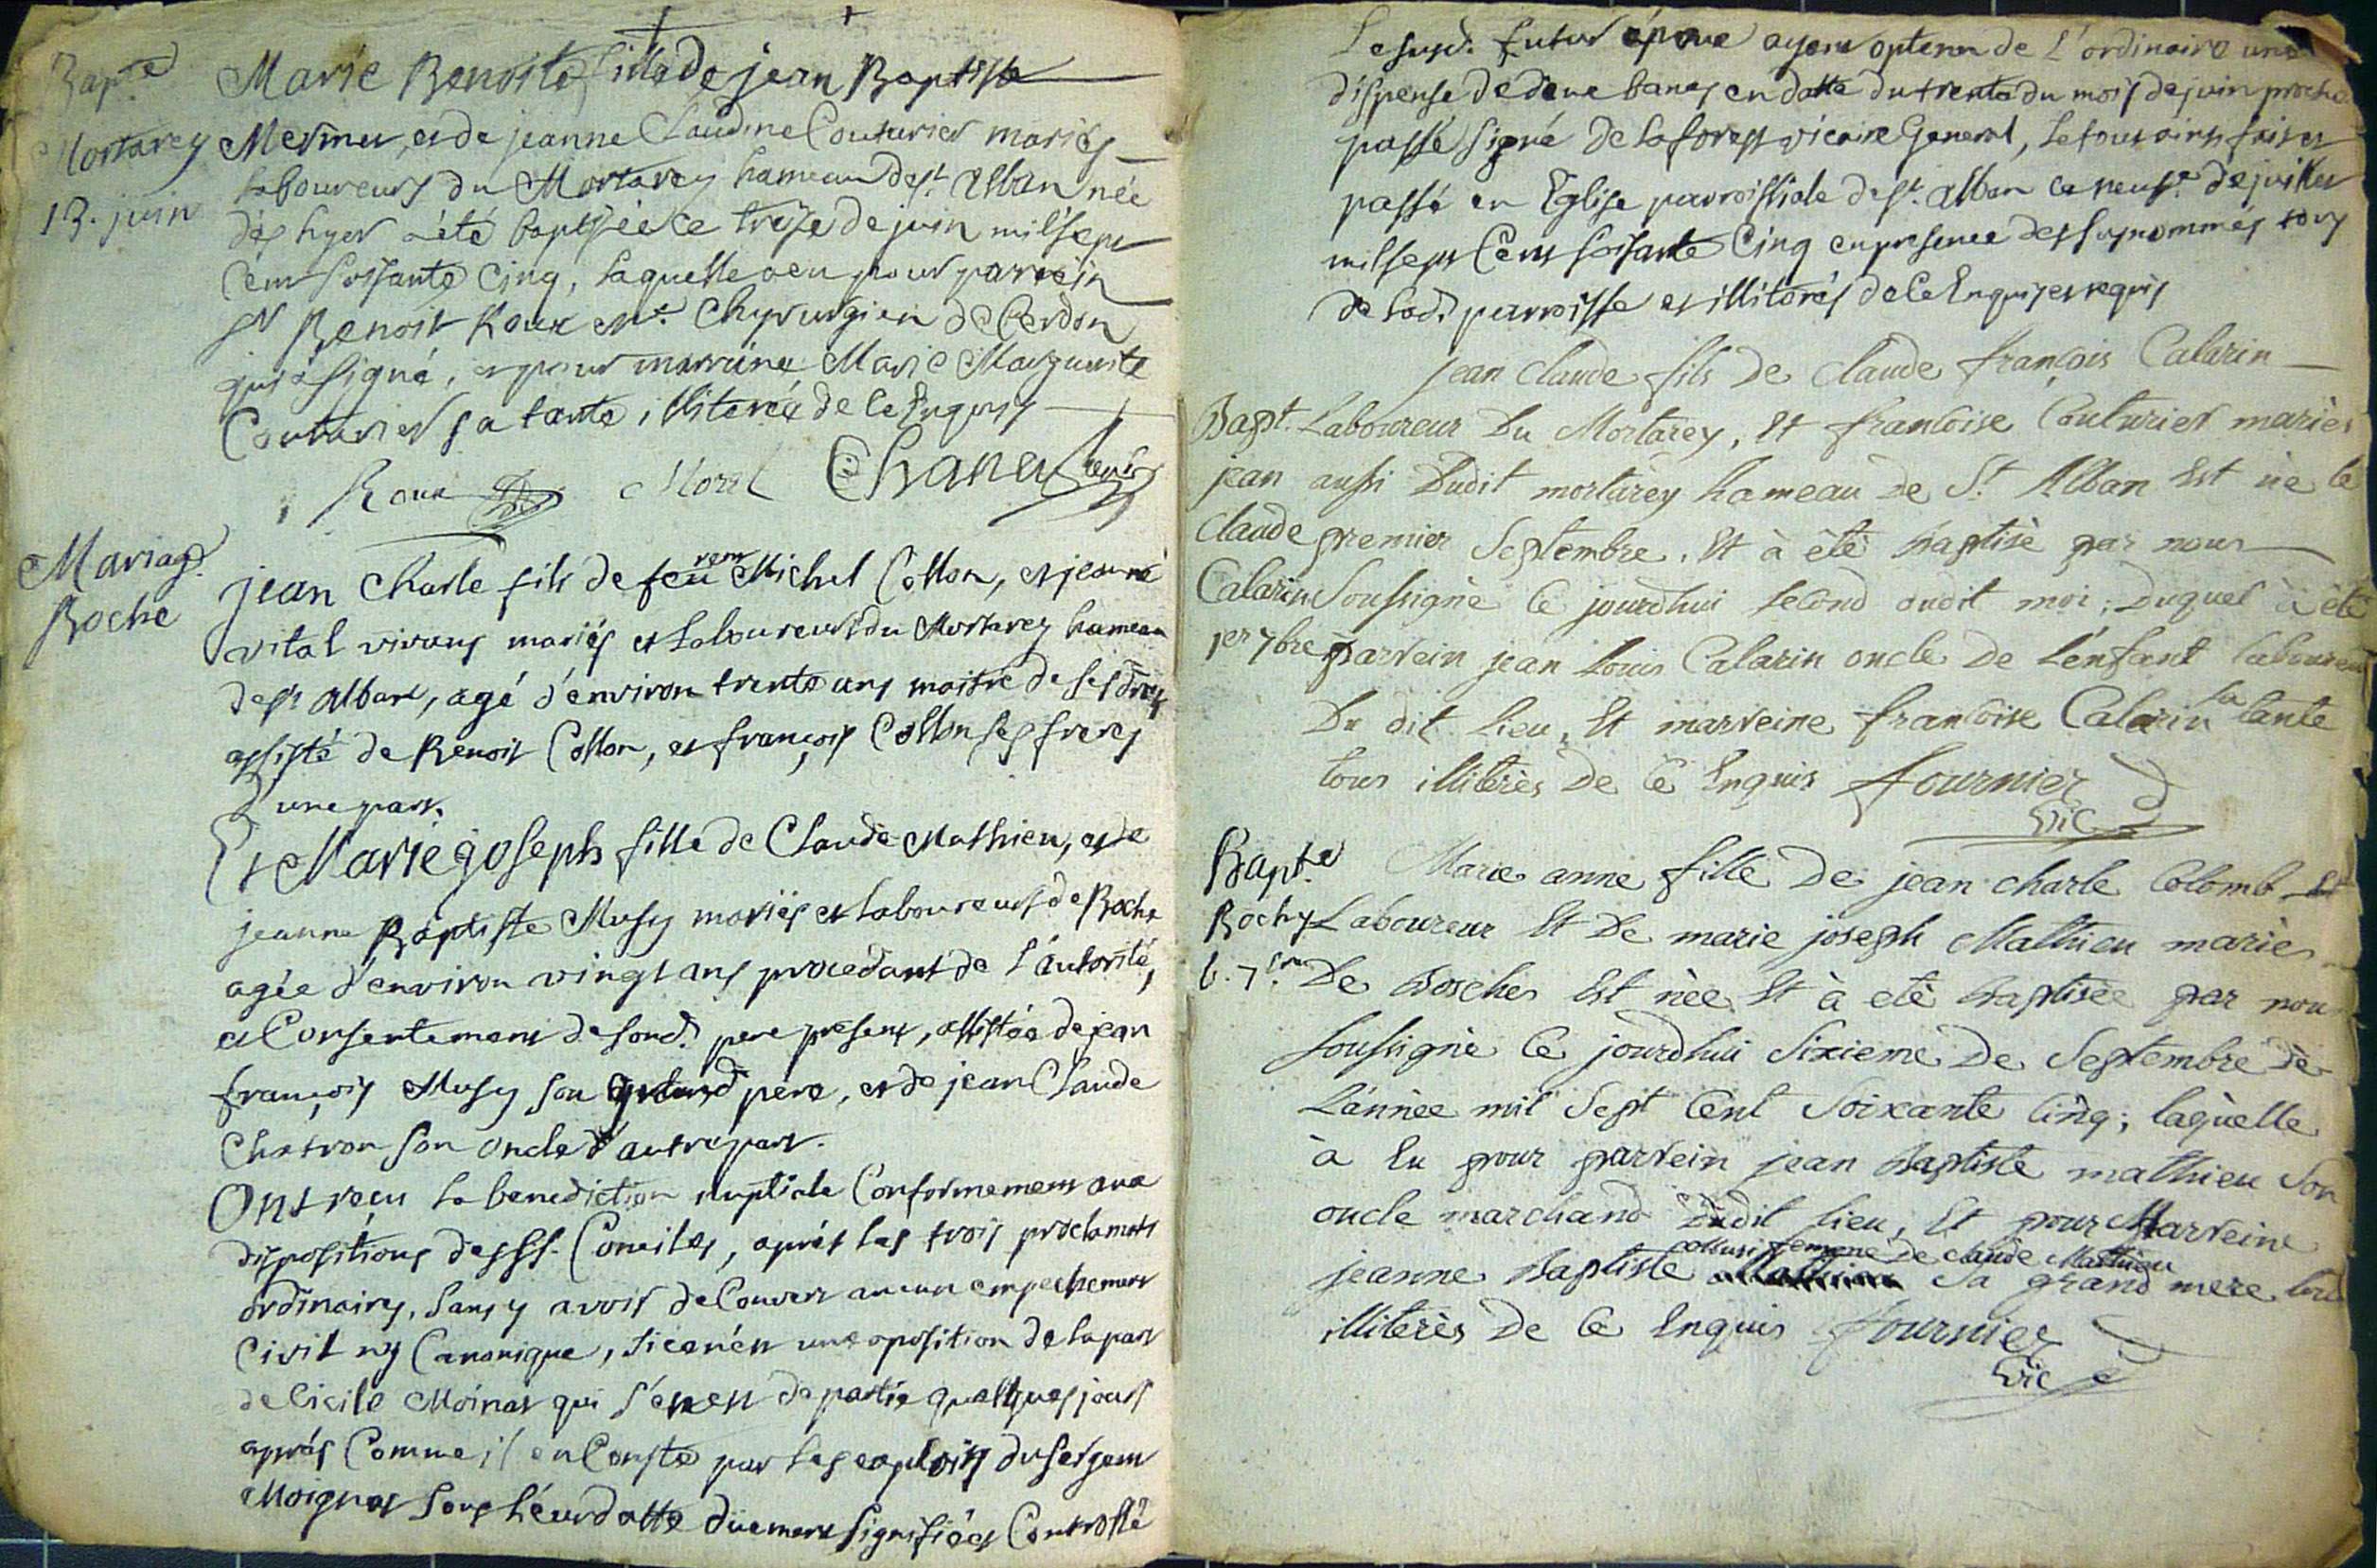 Bapt.e
Mortarey
13. juin
Marie Benoite fille de jean Baptiste
Mermet, et de jeanne Claudine Couturier mariés
laboureurs du Mortarey hameau de st. Alban née
dés hyer a été baptisée ce treize de juin mil sept
Cent soissante Cinq, laquelle a eu pour parrein
sr Benoit Roux mt. Chyrurgien de Cerdon
qui a signé, et pour marrine Marie Marguerite
Couturier sa tante, illiterée de ce Enquis
Roux Morel Chanel
Mariage
Roche
jean Charle fils de feu Michel Collon, et jeanne
vital vivans mariés et laboureurs du Mortarey hameau
de st alban, agé d'environ trente ans maitre de ses drois
assisté de Benoit Collon, et françois Collon ses freres
d'une part.
Et Marie joseph fille de Claude Mathieu, et de
jeanne Baptiste Musy mariés et laboureurs de Roche
agée d'environ vingt ans procedant de l'autorité,
et Consentement de sond. pere present, assistée de jean
françois Musy son grand pere, et de jean Claude
Chatron son oncle d'autre part.
Ont reçu la benediction nuptiale Conformement aux
dispositions des sts. Conciles, aprés les trois proclamats
ordinaires, sans y avoir decouvert aucun empechement
Civil ny Canonique, si ce n'est une oposition de la part
de Cicile Moinat qui s'en est departie quelques jours
aprés Comme il en Conste par les exploits du sergent
Moignat sous leur datte duement signifiées Controllé
Le susd. futur époux ayant optenu de l'ordinaire une
dispense de deux bancs en datte du trente du mois de juin proche
passé signé De laforest vicaire General, le tout ainsi fait et
passé en Eglise parroissiale de st. alban ce neuf. de juillet
mil sept Cent soissante Cinq en presence des susnommés tous
de lad. parroisse et illiterés de ce Enquis et requis
jean Claude fils De Claude françois Calarin
Bapt. Laboureur Du Mortarey, Et françoise Couturier mariés
jean aussi Dudit mortarey hameau De St Alban Est né le
Claude premier Septembre, Et à èté baptisè par nous
Calarin Soussignè Ce jourdhui second dudit moi, Duquel à èté
1er 7bre parrein jean Louis Calarin oncle De L'enfant laboureur
Du dit lieu, Et marreine françoise Calarin sa tante
tous illiterès De Ce Enquis fournier
vic
Bapt.e Marie anne fille De jean charle Colomb Et
Rochy Laboureur Et De marie joseph Mathieu mariès
6. 7bre De Rosches Est nèe Et à etè baptisèe par nou
Soussignè Ce jourdhui Sixieme De Septembre De
L'annèe mil Sept Cent Soixante Cinq; laquelle
à Eu pour parrein jean Baptiste mathieu Son
oncle marchand Dudit lieu, Et pour Marreine
Musi femme De claude Mathieu
jeanne Baptiste Sa grand mere tous
illiterès De Ce Enquis fournier
vic